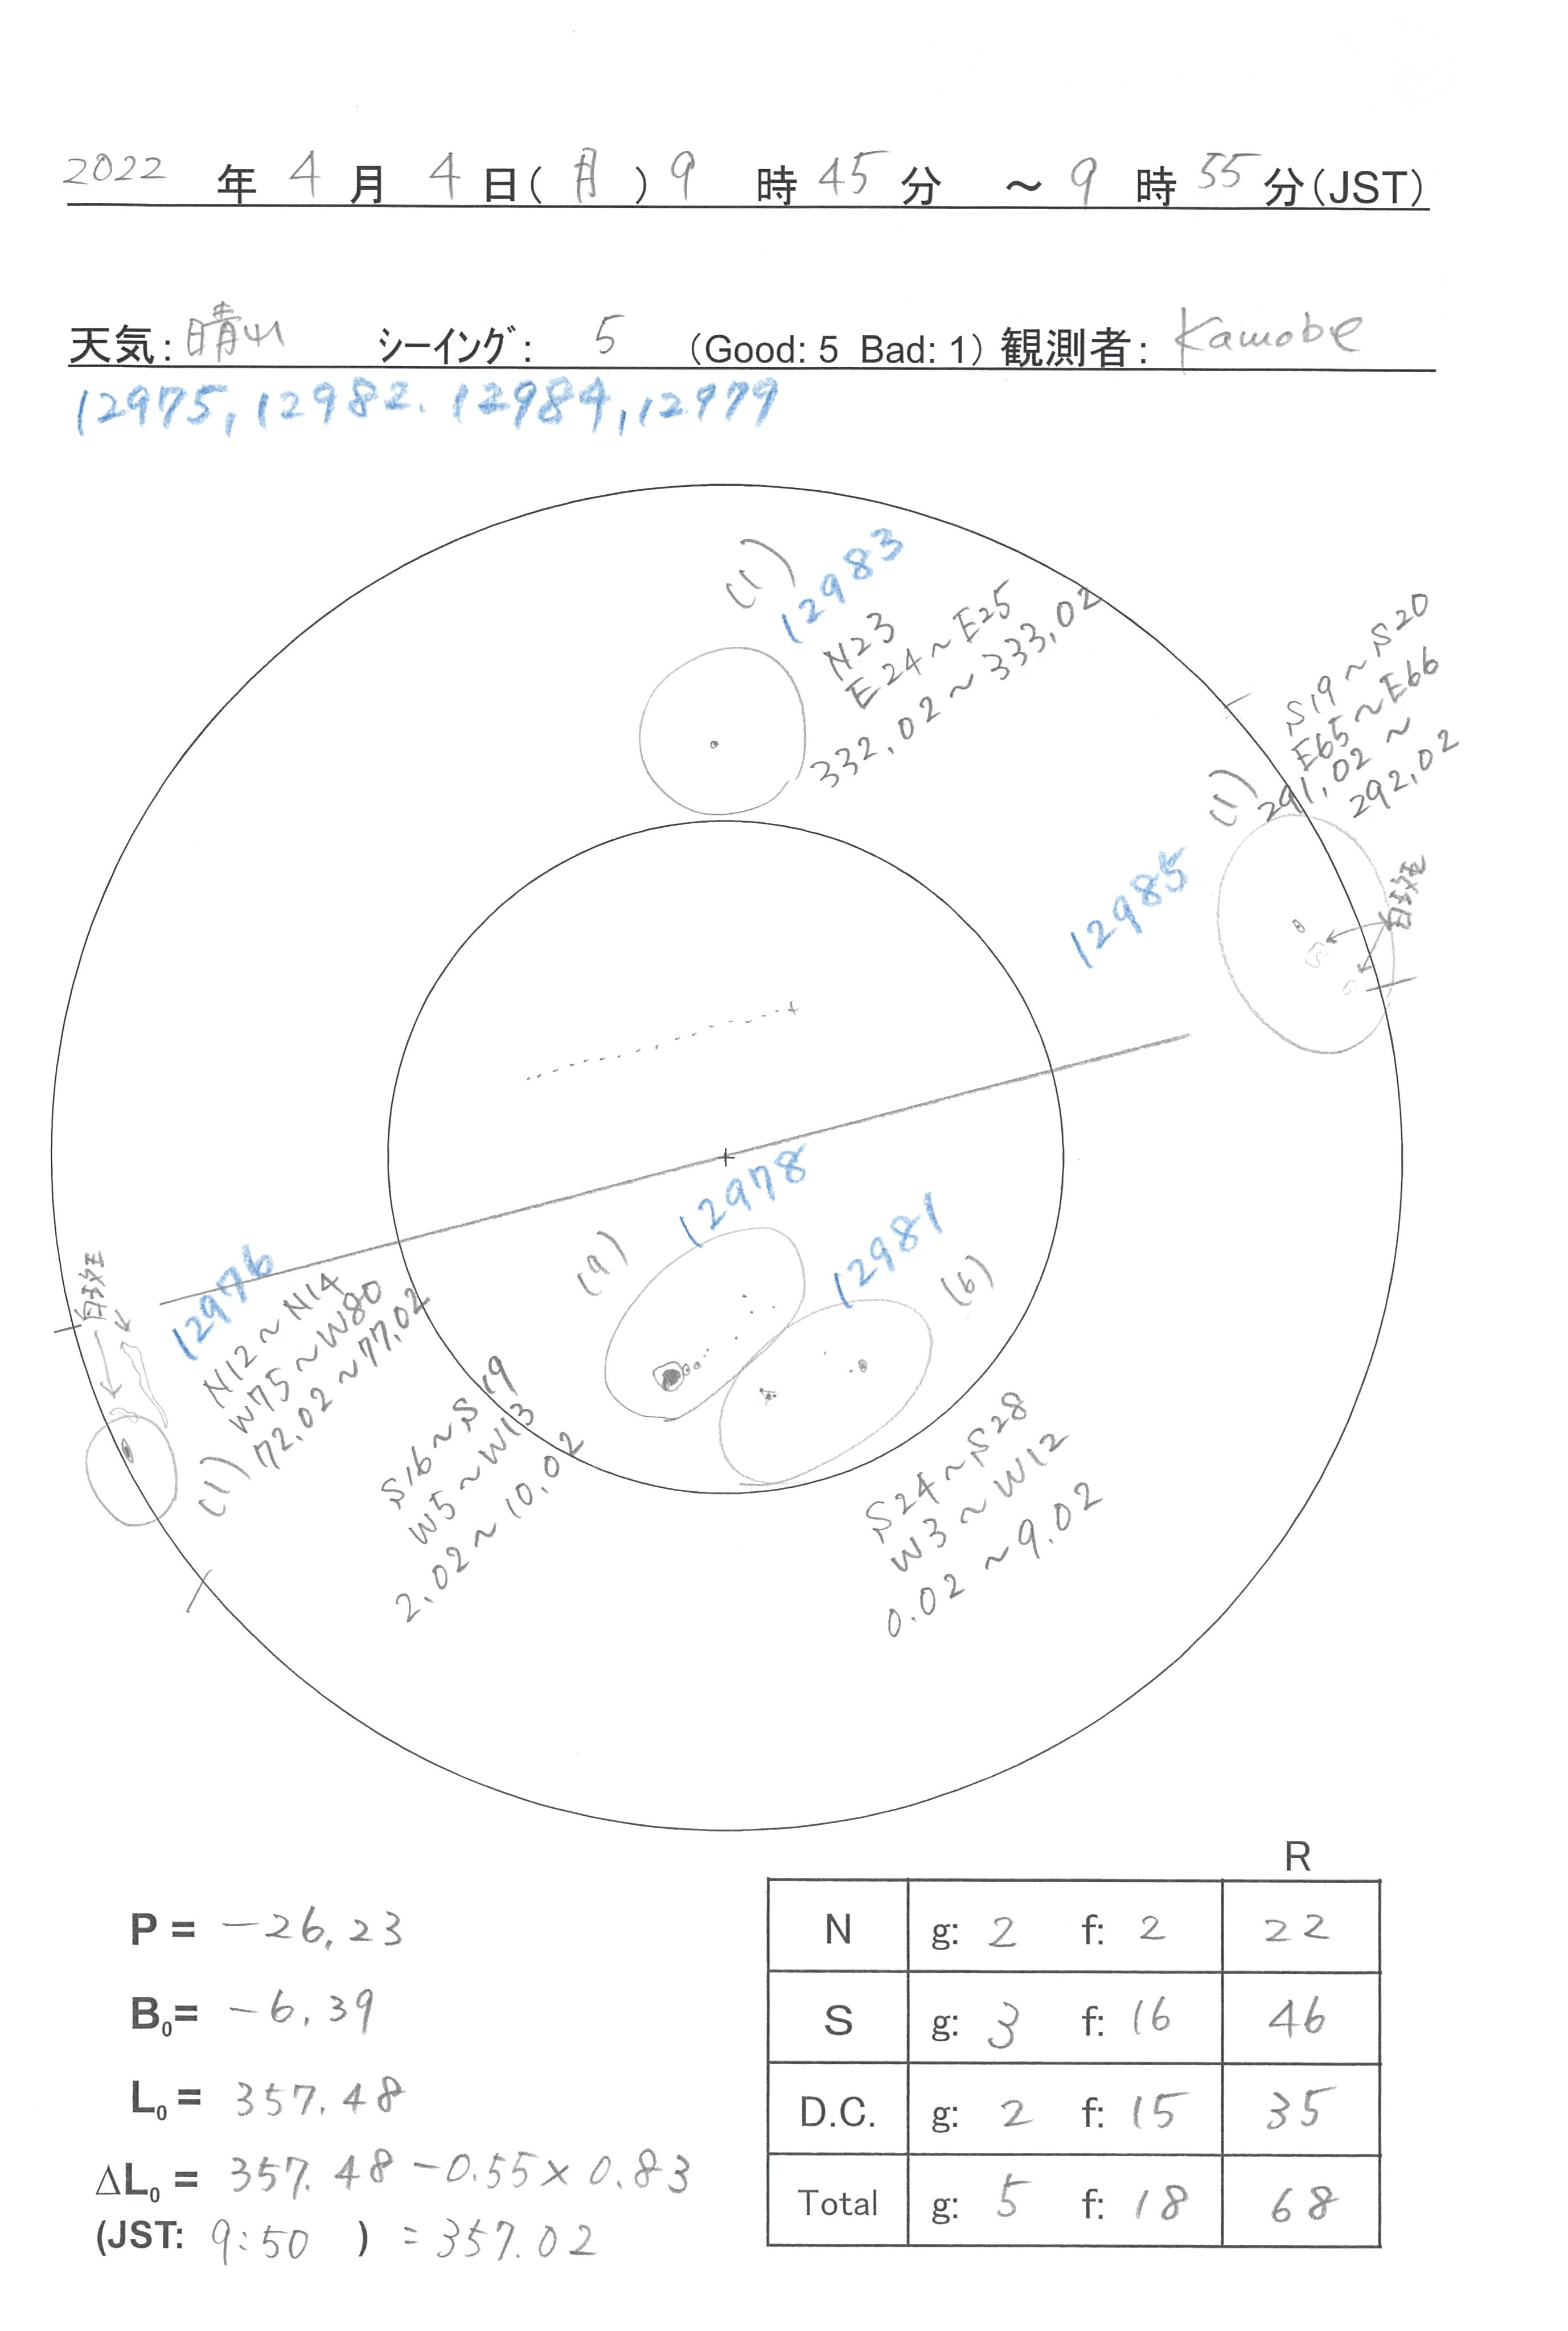 2022 年 4 月 4 日(月) 9 時 45 分 ~ 9 時 55 分(JST)
天気: 晴れ シーイング: 5 (Good: 5 Bad: 1) 観測者: Kamobe
12975, 12982. 12984, 12979
(1)
12983
N23
E24~E25
332.02~333.02
S19~S20
E65~E66
291.02~
292.02
(1)
12985
白斑
12978
(9)
12981
(6)
白斑
12976
N12~N14
W75~W80
72.02~77.02
(1)
S16~S19
W5~W13
2.02~10.02
S24~S28
W3~W12
0.02~9.02
P = -26.23
B₀= -6.39
L₀ = 357.48
ΔL₀ = 357.48-0.55×0.83
(JST: 9:50 ) =357.02
R
N g: 2 f: 2 22
S g: 3 f: 16 46
D.C. g: 2 f: 15 35
Total g: 5 f: 18 68